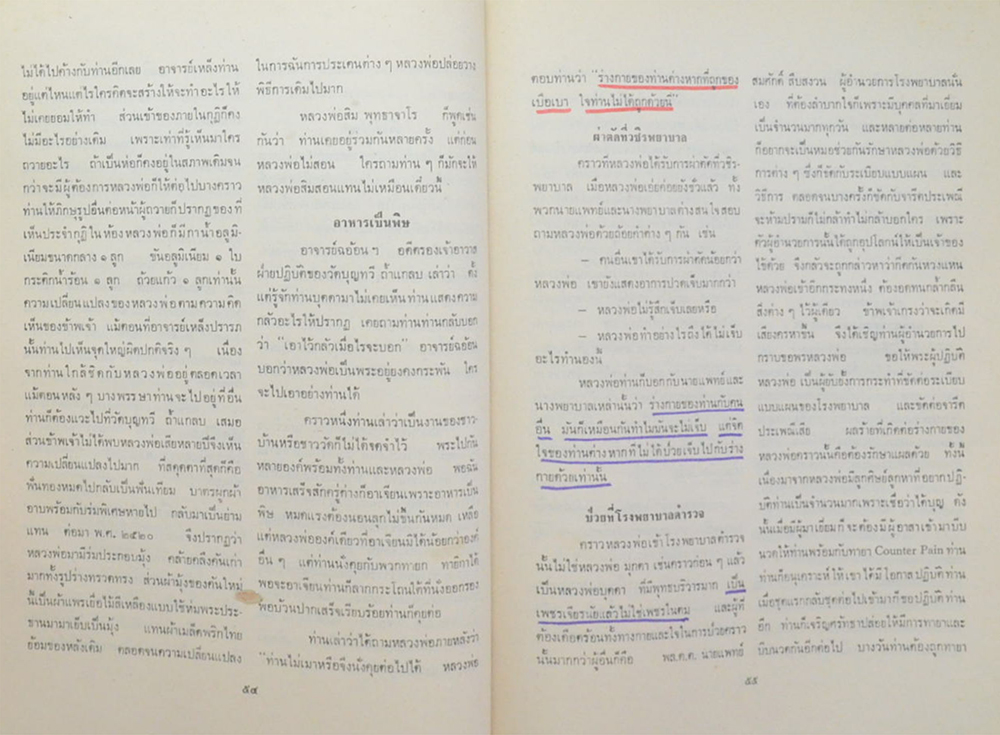 ไม่ได้ไปค้างกับท่านอีกเลย อาจารย์เหล็งท่าน
อยู่แค่ไหนแค่ไรใครคิดจะสร้างให้จะทำอะไรให้
ไม่เคยยอมให้ทำ ส่วนเข้าของภายในกุฏิก็คง
ไม่มีอะไรอย่างเดิม เพราะเท่าที่รู้เห็นมาใคร
ถวายอะไร ถ้าเป็นห่อก็คงอยู่ในสภาพเดิมจน
กว่าจะมีผู้ต้องการหลวงพ่อก็ให้ต่อไปบางคราว
ท่านให้ภิกษุรูปอื่นต่อหน้าผู้ถวายก็ปรากฏ ของที่
เห็นประจำกุฏิในห้องหลวงพ่อก็มีกาน้ำอลูมิ-
เนียมขนาดกลาง ๑ ลูก ขันอลูมิเนียม ๑ ใบ
กระติกน้ำร้อน ๑ ลูก ถ้วยแก้ว ๑ ลูกเท่านั้น
ความเปลี่ยนแปลงของหลวงพ่อตามความคิด
เห็นของข้าพเจ้า แม้ตอนที่อาจารย์เหล็งปรารภ
นั้นท่านไปเห็นจุดใหญ่ผิดปกติจริง ๆ เนื่อง
จากท่านใกล้ชิดกับหลวงพ่ออยู่ตลอดเวลา
แม้ตอนหลัง ๆ บางพรรษาท่านจะไปอยู่ที่อื่น
ท่านก็ต้องแวะไปที่วัดบุญทวี ถ้ำแกลบ เสมอ
ส่วนข้าพเจ้าไม่ได้พบหลวงพ่อเสียหลายปีจึงเห็น
ความเปลี่ยนแปลงไปมาก ที่สดุดตาที่สุดก็คือ
ฟันทองหมดไปกลับเป็นฟันเทียม บาตรผูกผ้า
อาบพร้อมกับร่มพิเศษหายไป กลับมาเป็นย่าม
แทน ต่อมา พ.ศ. ๒๕๒๐ จึงปรากฏว่า
หลวงพ่อมามีร่มประกอบมุ้ง คล้ายคลึงคันเก่า
มากทั้งรูปร่างทรวดทรง ส่วนผ้ามุ้งของคันใหม่
นี้เป็นผ้าแพรเยื่อไม้สีเหลืองแบบใช้ห่มพระประ-
ธานมาเย็บเป็นมุ้ง แทนผ้าเมล็ดพริกไทย
ย้อมของหลังเดิม ตลอดจนความเปลี่ยนแปลง
ในการฉันการประเคนต่าง ๆ หลวงพ่อปล่อยวาง
พิธีการเดิมไปมาก
หลวงพ่อสิม พุทธาจาโร ก็พูดเช่น
กันว่า ท่านเคยอยู่รวมกันหลายครั้ง แต่ก่อน
หลวงพ่อไม่สอน ใครถามท่าน ๆ ก็มักจะให้
หลวงพ่อสิมสอนแทนไม่เหมือนเดี๋ยวนี้
อาหารเป็นพิษ
อาจารย์ฉออ้น ฯ อดีตรองเจ้าอาวาส
ฝ่ายปฏิบัติของวัดบุญทวี ถ้ำแกลบ เล่าว่า ตั้ง
แต่รู้จักท่านบุดดามาไม่เคยเห็นท่านแสดงความ
กลัวอะไรให้ปรากฏ เคยถามท่านท่านกลับบอก
ว่า “เอาไว้กลัวเมื่อไรจะบอก” อาจารย์ฉออ้น
บอกว่าหลวงพ่อเป็นพระอยู่ยงคงกระพัน ใคร
จะไปเอาอย่างท่านได้
คราวหนึ่งท่านเล่าว่าเป็นงานของชาว
บ้านหรือชาววัดก็ไม่ได้จดจำไว้ พระไปกัน
หลายองค์พร้อมทั้งท่านและหลวงพ่อ พอฉัน
อาหารเสร็จสักครู่ต่างก็อาเจียนเพราะอาหารเป็น
พิษ หมดแรงต้องนอนลุกไม่ขึ้นกันหมด เหลือ
แต่หลวงพ่อองค์เดียวที่อาเจียนมิได้น้อยกว่าองค์
อื่น ๆ แต่ท่านนั่งคุยกับพวกทายก ทายิกาได้
พอจะอาเจียนท่านก็ลากกระโถนใต้ที่นั่งออกรอง
พอบ้วนปากเสร็จเรียบร้อยท่านก็คุยต่อ
ท่านเล่าว่าได้ถามหลวงพ่อภายหลังว่า
“ท่านไม่เมาหรือจึงนั่งคุยต่อไปได้ หลวงพ่อ
๕๔
ตอบท่านว่า “ร่างกายของท่านต่างหากที่ถูกของ
เบื่อเบา ใจท่านไม่ได้ถูกด้วยนี่”
ผ่าตัดที่วชิรพยาบาล
คราวที่หลวงพ่อได้รับการผ่าตัดที่วชิร-
พยาบาล เมื่อหลวงพ่อเอ่ยค่อยยังชั่วแล้ว ทั้ง
พวกนายแพทย์และนางพยาบาลต่างสนใจสอบ
ถามหลวงพ่อด้วยถ้อยคำต่าง ๆ กัน เช่น
– คนอื่นเขาได้รับการผ่าตัดน้อยกว่า
หลวงพ่อ เขายังแสดงอาการปวดเจ็บมากกว่า
– หลวงพ่อไม่รู้สึกเจ็บเลยหรือ
– หลวงพ่อทำอย่างไรถึงได้ไม่เจ็บ
อะไรทำนองนี้
หลวงพ่อท่านก็บอกกับนายแพทย์และ
นางพยาบาลเหล่านั้นว่า ร่างกายของท่านกับคน
อื่น มันก็เหมือนกันทำไมมันจะไม่เจ็บ แต่จิต
ใจของท่านต่างหากที่ไม่ได้ป่วยเจ็บไปกับร่าง
กายด้วยเท่านั้น
ป่วยที่โรงพยาบาลตำรวจ
คราวหลวงพ่อเข้าโรงพยาบาลตำรวจ
นั้นไม่ใช่หลวงพ่อ มุกดา เช่นคราวก่อน ๆ แล้ว
เป็นหลวงพ่อบุดดา ที่มีพุทธบริวารมาก เป็น
เพชรเจียรนัยแล้วไม่ใช่เพชรในตม และผู้ที่
ต้องเดือดร้อนทั้งทางกายและใจในการป่วยคราว
นั้นมากกว่าผู้อื่นก็คือ พล.ต.ต. นายแพทย์
สมศักดิ์ สืบสงวน ผู้อำนวยการโรงพยาบาลนั้น
เอง ที่ต้องลำบากใจก็เพราะมีบุคคลที่มาเยี่ยม
เป็นจำนวนมากทุกวัน และหลายต่อหลายท่าน
ก็อยากจะเป็นหมอช่วยกันรักษาหลวงพ่อด้วยวิธี
การต่าง ๆ ซึ่งก็ขัดกับระเบียบแบบแผน และ
วิธีการ ตลอดจนบางครั้งก็ขัดกับจารีตประเพณี
จะห้ามปรามก็ไม่กล้าทำไม่กล้าบอกใคร เพราะ
ตัวผู้อำนวยการนั้นได้ถูกอุปโลกน์ให้เป็นเจ้าของ
ไข้ด้วย จึงกลัวจะถูกกล่าวหาว่ากีดกันหวงแหน
หลวงพ่อเข้าอีกกระทงหนึ่ง ต้องอดทนกล้ำกลืน
สิ่งต่าง ๆ ไว้ผู้เดียว ข้าพเจ้าเกรงว่าจะเกิดมี
เสียงครหาขึ้น จึงได้เชิญท่านผู้อำนวยการไป
กราบขอพรหลวงพ่อ ขอให้พระผู้ปฏิบัติ
หลวงพ่อ เป็นผู้ยับยั้งการกระทำที่ขัดต่อระเบียบ
แบบแผนของโรงพยาบาล และขัดต่อจารีต
ประเพณีเสีย ผลร้ายที่เกิดต่อร่างกายของ
หลวงพ่อคราวนั้นคือต้องรักษาแผลด้วย ทั้งนี้
เนื่องมาจากหลวงพ่อมีลูกศิษย์ลูกหาที่อยากปฏิ-
บัติท่านเป็นจำนวนมากเพราะเชื่อว่าได้บุญ ดัง
นั้นเมื่อมีผู้มาเยี่ยมก็จะต้องมีผู้อาสาเข้ามาบีบ
นวดให้ท่านพร้อมกับทายา Counter Pain ท่าน
ท่านก็อนุเคราะห์ให้เขาได้มีโอกาสปฏิบัติท่าน
เมื่อชุดแรกกลับชุดต่อไปเข้ามาก็ขอปฏิบัติท่าน
อีก ท่านก็เจริญศรัทธาปล่อยให้มีการทายาและ
บีบนวดกันอีกต่อไป บางวันท่านต้องถูกทายา
๕๕